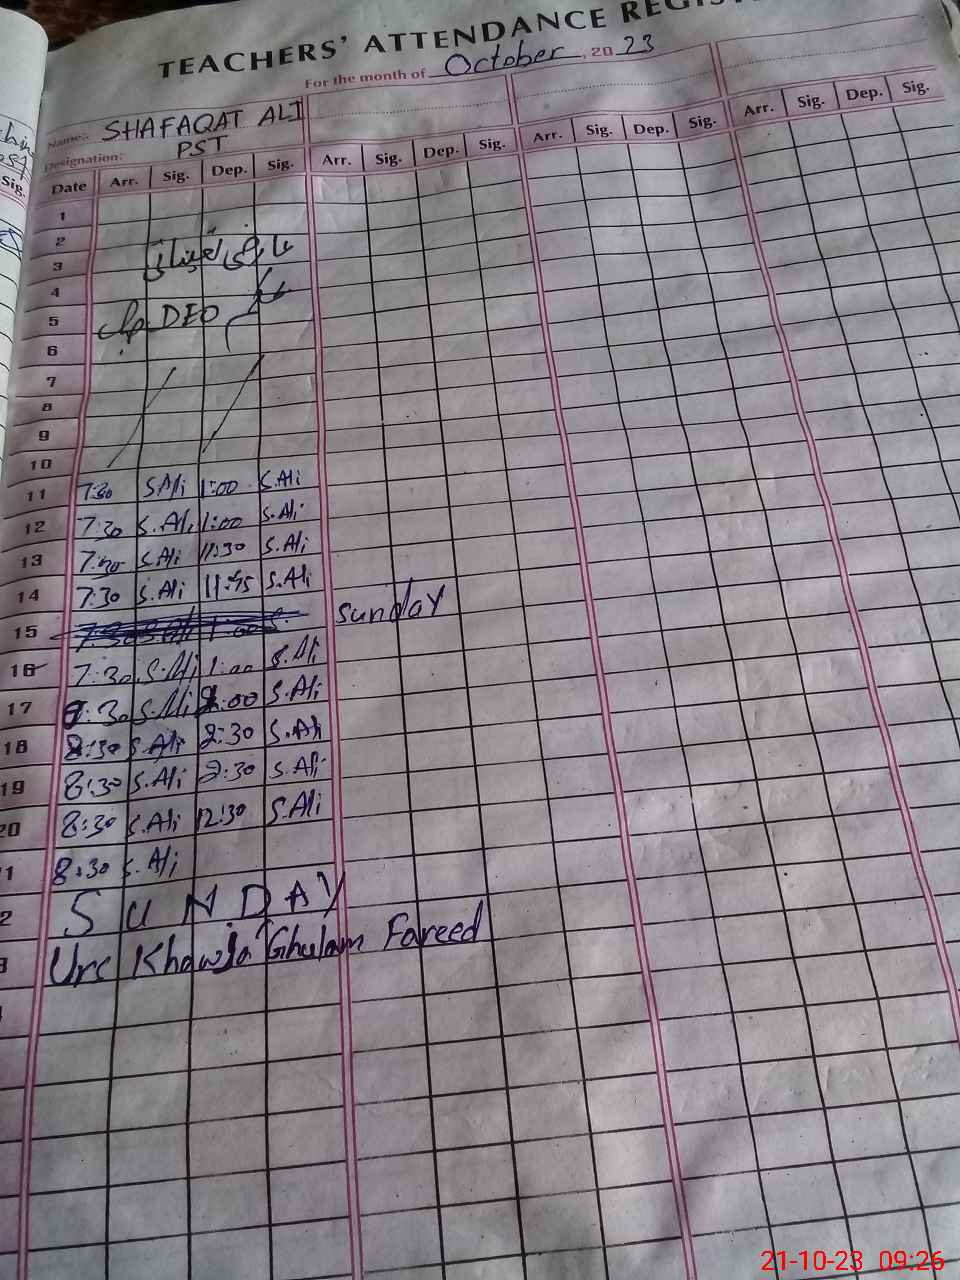 TEACHERS' ATTENDANCE
For the month of October, 20 23
Name: SHAFAQAT ALI
Designation: PST
Sig.
Date Arr. Sig. Dep. Sig. Arr. Sig. Dep. Sig. Arr. Sig. Dep. Sig. Arr. Sig. Dep. Sig.
1
2
3
4
5 DEO
6
7
8
9
10
11 7:30 S.Ali 1:00 S.Ali
12 7:30 S.Ali 1:00 S.Ali
13 7:30 S.Ali 11:30 S.Ali
14 7:30 S.Ali 11:45 S.Ali
15 Sunday
16 7:30 S.Ali 1:00 S.Ali
17 :30 S.Ali :00 S.Ali
18 8:30 S.Ali 2:30 S.Ali
19 8:30 S.Ali 2:30 S.Ali
20 8:30 S.Ali 12:30 S.Ali
1 8:30 S.Ali
2 SUNDAY
3 Urs Khawja Ghulam Fareed
21-10-23 09:26